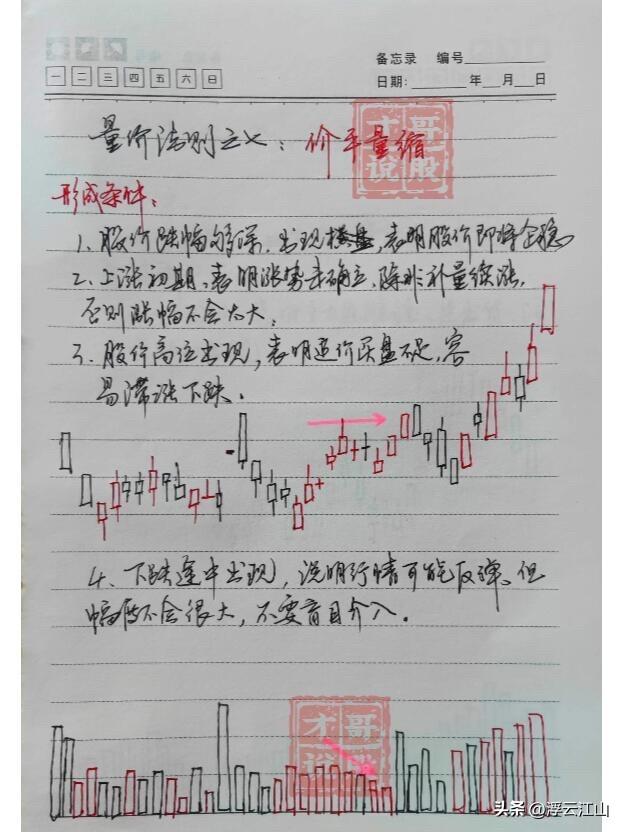 备忘录 编号
一 二 三 四 五 六 日
日期: 年 月 日
量价法则之七：价平量缩
形成条件：
1、股价跌幅够深，出现横盘，表明股价即将企稳
2、上涨初期，表明涨势未确立，除非补量续涨，
否则涨幅不会太大；
3、股价高位出现，表明追价买盘不足，容
易滞涨下跌。
4、下跌途中出现，说明行情可能反弹、但
幅度不会很大，不要盲目介入。
才哥说股
才哥说股
头条 @浮云江山